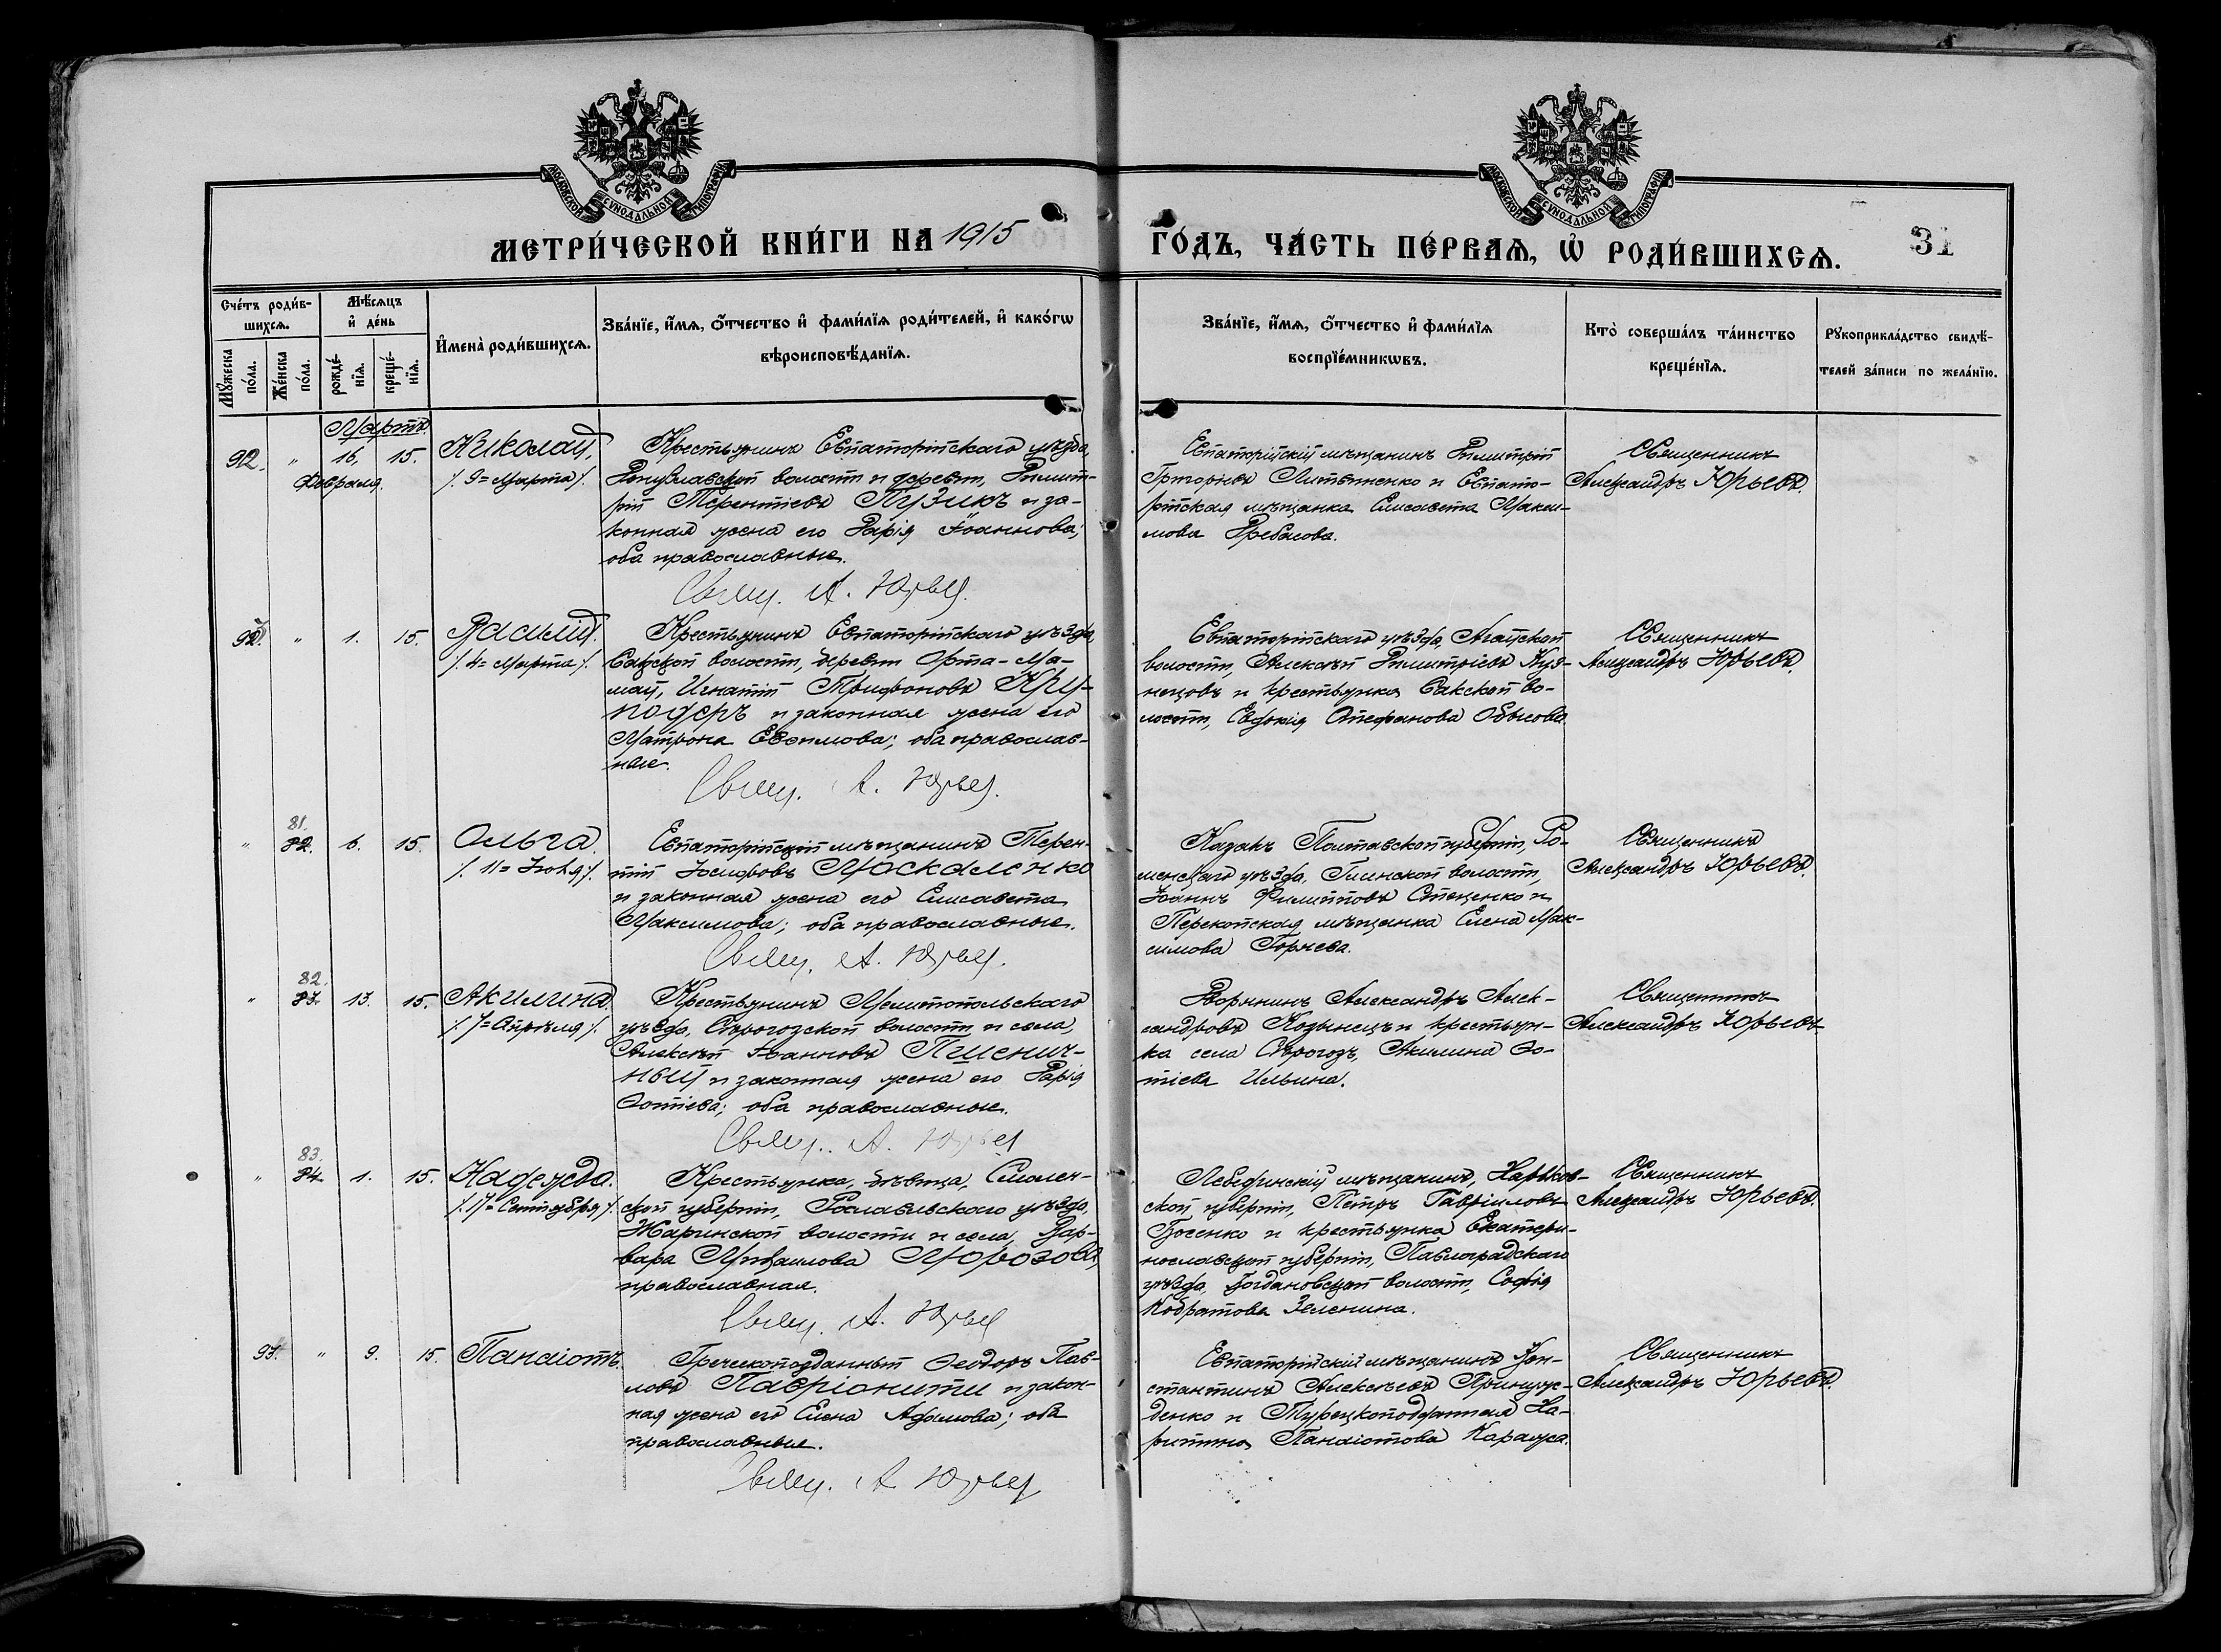 МОСКОВСКОЙ СѴНОДАЛЬНОЙ ТИПОГРАФІИ
МОСКОВСКОЙ СѴНОДАЛЬНОЙ ТИПОГРАФІИ
МЕТРИ́ЧЕСКОЙ КНИ́ГИ НА 1915
ГО́ДЪ, ЧА́СТЬ ПЕ́РВАѦ, Ѡ҆ РОДИ́ВШИХСѦ.
31
Сче́тъ роди́в-
шихсѧ.
Мѣ́сѧцъ
и҆ де́нь
И҆мена̀ роди́вшихсѧ.
Зва́нїе, и҆́мѧ, ѻ҆́тчество и҆ фами́лїѧ роди́телей, и҆ како́гѡ
вѣроисповѣ́данїѧ.
Зва́нїе, и҆́мѧ, ѻ҆́тчество и҆ фами́лїѧ
воспрїе́мникѡвъ.
Кто̀ соверша́лъ та́инство
креще́нїѧ.
Рꙋкоприкла́дство свидѣ́-
телей за́писи по жела́нїю.
Мꙋ́жеска
по́ла.
Же́нска
по́ла.
рожде́-
нїѧ.
креще́-
нїѧ.
Мартъ.
92. " 16, 15.
Февраля.
Николай.
/. 9= Марта /.
Крестьянинъ Евпаторійскаго уѣзда,
Донузлавской волости и деревни, Димит-
рій Терентіевъ Пузикъ и за-
конная жена его Дарія Іоаннова;
оба православные.
Свящ. А. Юрьев.
Евпаторійскій мѣщанинъ Димитрій
Григорьевъ Литвиненко и Евпато-
рійская мѣщанка Елисавета Макси-
мова
Священникъ
Александръ Юрьевъ.
93. " 1. 15.
Василій.
/. 4= Марта /.
Крестьянинъ Евпаторійскаго уѣзда,
Сакской волости, деревни Орта-Ма-
май, Игнатій Трифоновъ Кру-
подеръ и законная жена его
Матрона Евѳимова; оба православ-
ные.
Свящ. А. Юрьев.
Евпаторійскаго уѣзда, Агайской
волости, Алексѣй Димитріевъ Куз-
нецовъ и крестьянка Сакской во-
лости, Евдокія Стефанова
Священникъ
Александръ Юрьевъ.
81.
" 82. 6. 15.
Ольга.
/. 11= Іюля /.
Евпаторійскій мѣщанинъ Терен-
тій Іосифовъ Москаленко
и законная жена его Елисавета
Максимова; оба православные.
Свящ. А. Юрьев.
Казакъ Полтавской губерніи, Ро-
менскаго уѣзда, Глинской волости,
Іоаннъ Филипповъ Стеценко и
Перекопская мѣщанка Елена Мак-
симова Горчева.
Священникъ
Александръ Юрьевъ.
82.
" 83. 13. 15.
Акилина.
/. 7= Апрѣля /.
Крестьянинъ Мелитопольскаго
уѣзда, Сѣрогозской волости и села,
Алексѣй Іоанновъ Пшенич-
ный и законная жена его Дарія
Ѳотіева; оба православные.
Свящ. А. Юрьев
Дворянинъ Александръ Алек-
сандровъ Козынецъ и крестьян-
ка села Сѣрогозъ, Акилина Ѳо-
тіева Ильина.
Священникъ
Александръ Юрьевъ
83.
" 84. 1. 15.
Надежда.
/. 17= Сентября /.
Крестьянка, дѣвица, Смолен-
ской губерніи, Рославльскаго уѣзда,
Жаринской волости и села, Вар-
вара Михаилова Морозова,
православная.
Свящ. А. Юрьев
Лебединскій мѣщанинъ, Харьков-
ской губерніи, Петръ Гавріиловъ
Босенко и крестьянка Екатери-
нославской губерніи, Павлоградскаго
уѣзда, Богдановской волости, Софія
Кодратова Зеленина.
Священникъ
Александръ Юрьевъ.
94. " 9. 15.
Панаіотъ.
Греческоподданный Ѳеодоръ Пав-
ловъ Павріонити и закон-
ная жена его Елена Адамова; оба
православные.
Свящ. А Юрьев
Евпаторійскій мѣщанинъ Кон-
стантинъ Алексѣевъ Принуж-
денко и Турецкоподданная Ха-
ритина Панаіотова Каража.
Священникъ
Александръ Юрьевъ.